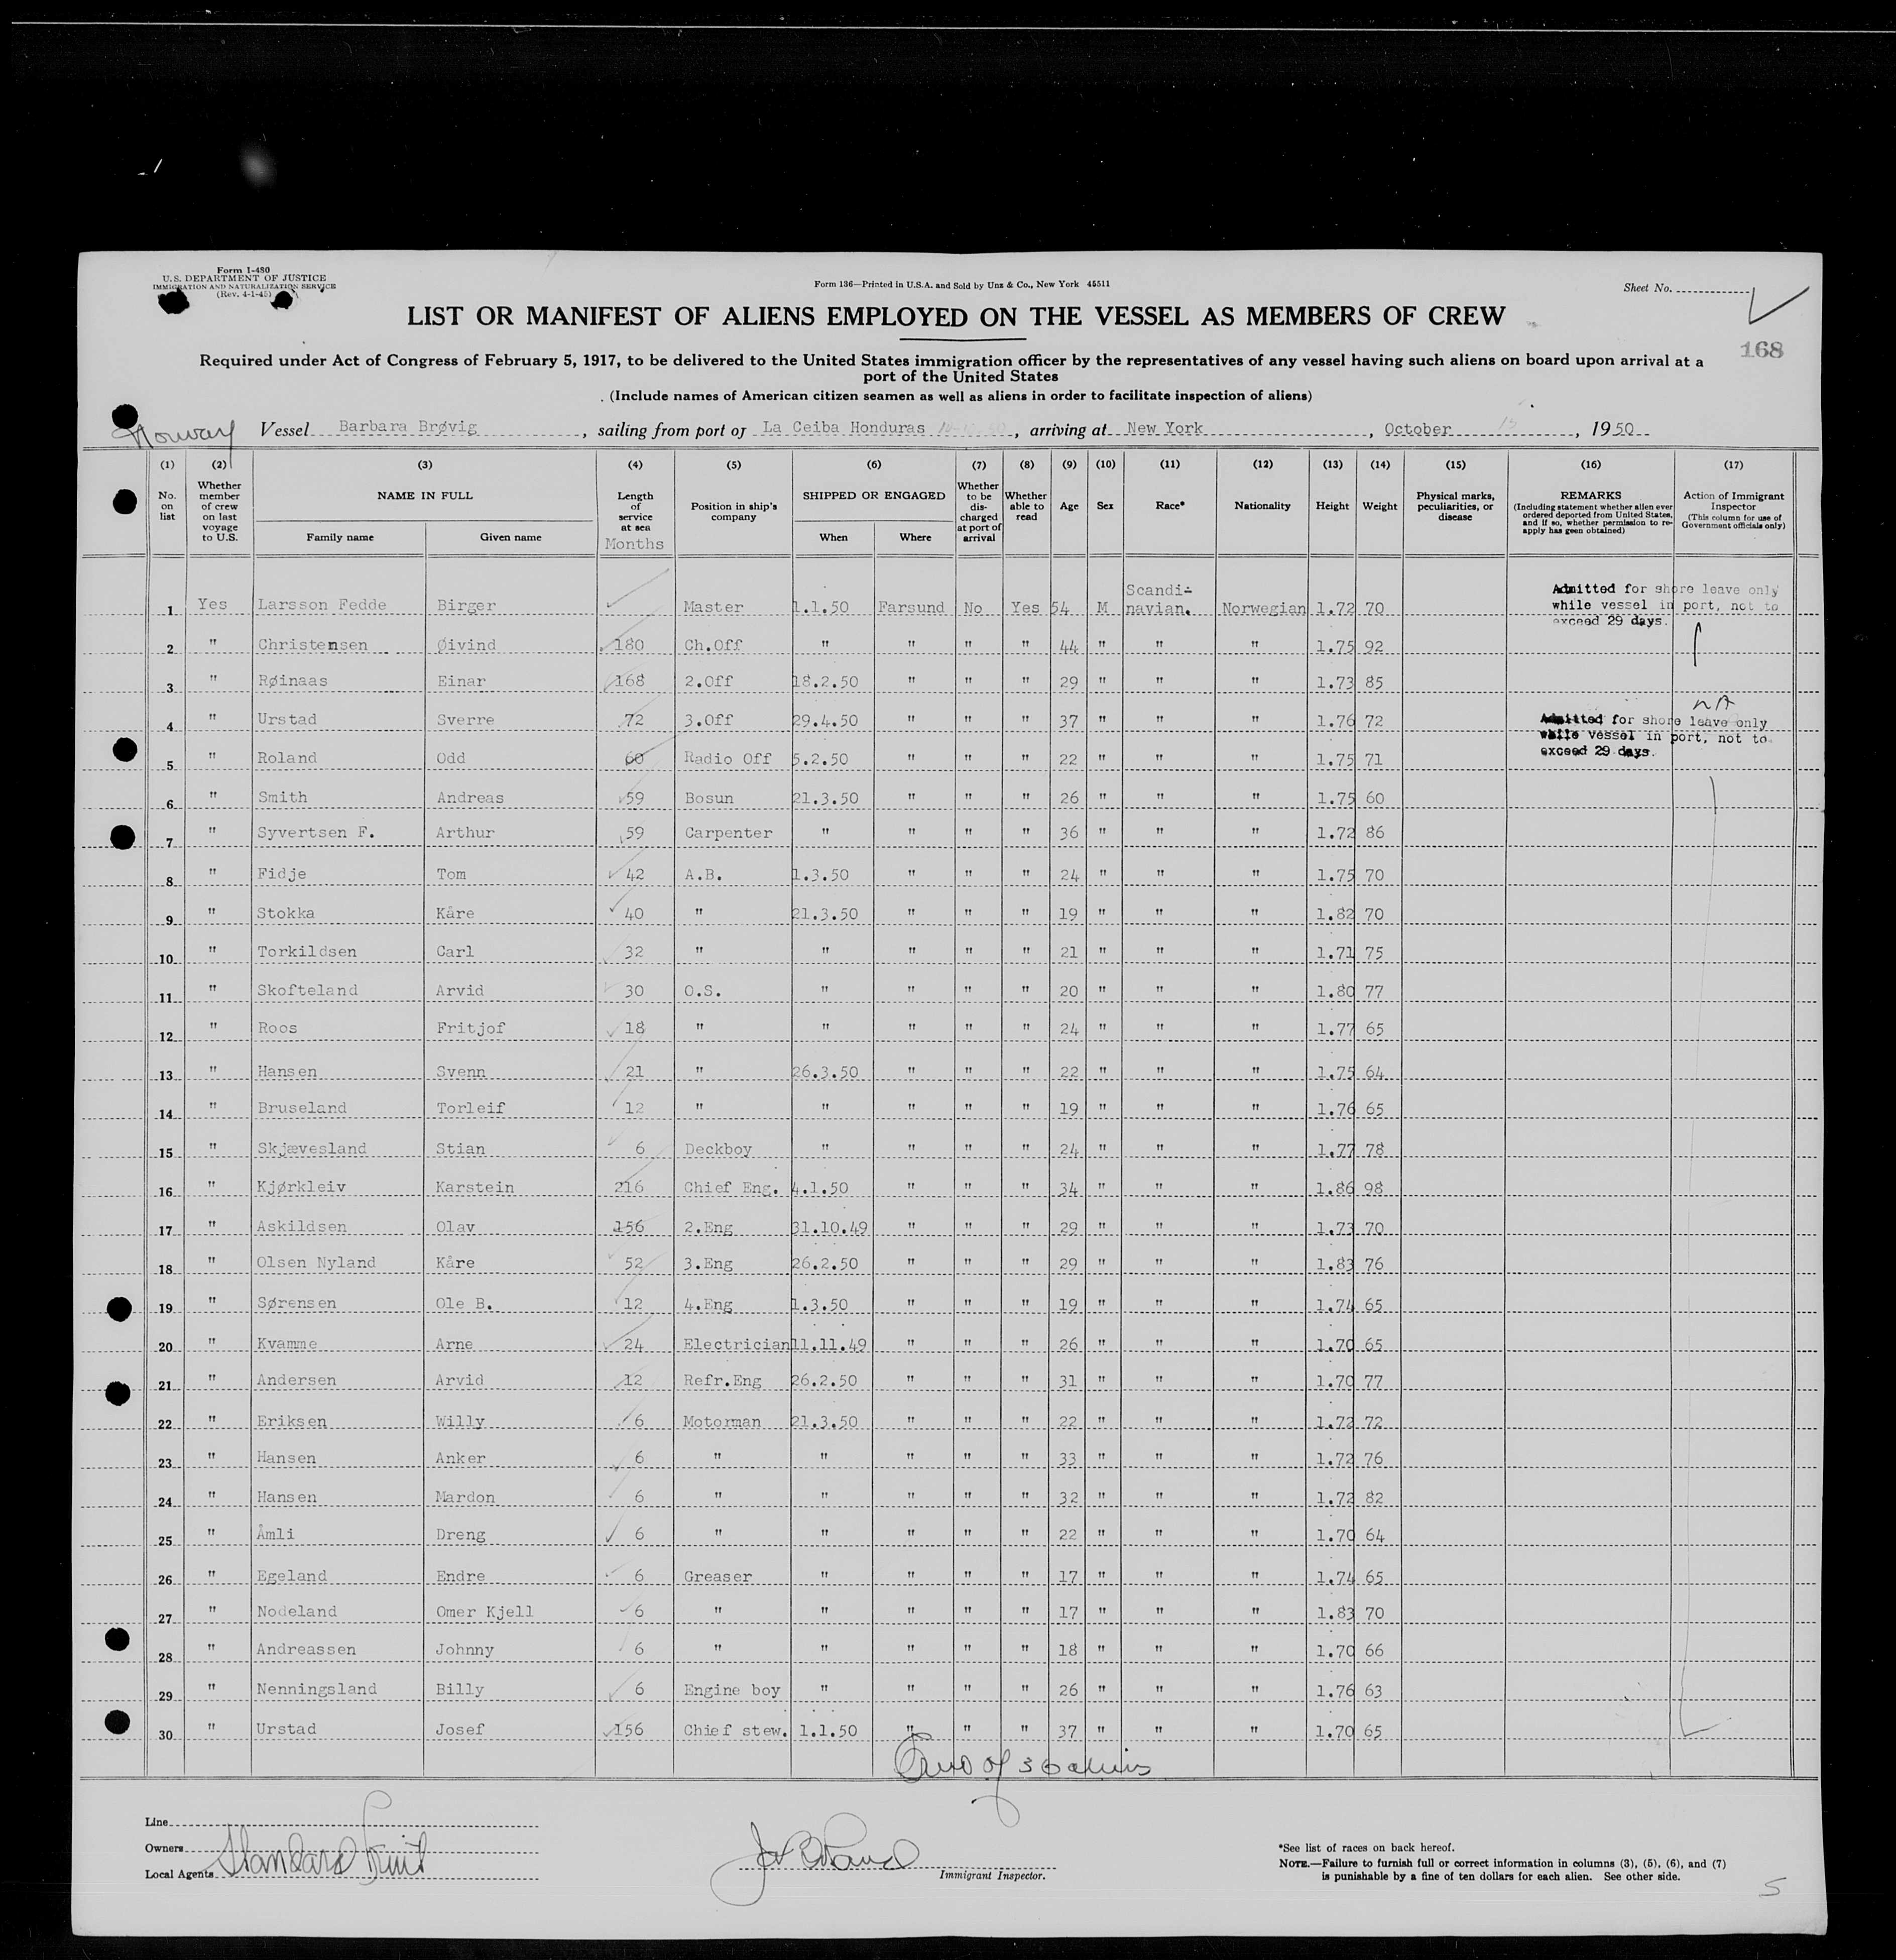 Form I-480
U.S. DEPARTMENT OF JUSTICE
IMMIGRATION AND NATURALIZATION SERVICE
(Rev. 4-1-45)
Form 136—Printed in U.S.A. and Sold by Unz & Co., New York 45511
Sheet No.
LIST OR MANIFEST OF ALIENS EMPLOYED ON THE VESSEL AS MEMBERS OF CREW
168
Required under Act of Congress of February 5, 1917, to be delivered to the United States immigration officer by the representatives of any vessel having such aliens on board upon arrival at a
port of the United States
(Include names of American citizen seamen as well as aliens in order to facilitate inspection of aliens)
Norway Vessel Barbara Brøvig, sailing from port of La Ceiba Honduras, arriving at New York, October 15, 1950
(1) (2) (3) (4) (5) (6) (7) (8) (9) (10) (11) (12) (13) (14) (15) (16) (17)
No. on list Whether member of crew on last voyage to U.S. NAME IN FULL Family name Given name Length of service at sea Months Position in ship's company SHIPPED OR ENGAGED When Where Whether to be discharged at port of arrival Whether able to read Age Sex Race* Nationality Height Weight Physical marks, peculiarities, or disease REMARKS (Including statement whether alien ever ordered deported from United States, and if so, whether permission to re-apply has geen obtained) Action of Immigrant Inspector (This column for use of Government officials only)
1 Yes Larsson Fedde Birger Master 1.1.50 Farsund No Yes 54 M Scandi-navian. Norwegian 1.72 70 Admitted for shore leave only while vessel in port, not to exceed 29 days.
2 " Christensen Øivind 180 Ch.Off " " " " 44 " " " 1.75 92
3 " Røinaas Einar 168 2.Off 18.2.50 " " " 29 " " " 1.73 85
4 " Urstad Sverre 72 3.Off 29.4.50 " " " 37 " " " 1.76 72 NA
Admitted for shore leave only while vessel in port, not to exceed 29 days.
5 " Roland Odd 60 Radio Off 5.2.50 " " " 22 " " " 1.75 71
6 " Smith Andreas 59 Bosun 21.3.50 " " " 26 " " " 1.75 60
7 " Syvertsen F. Arthur 59 Carpenter " " " " 36 " " " 1.72 86
8 " Fidje Tom 42 A.B. 1.3.50 " " " 24 " " " 1.75 70
9 " Stokka Kåre 40 " 21.3.50 " " " 19 " " " 1.82 70
10 " Torkildsen Carl 32 " " " " " 21 " " " 1.71 75
11 " Skofteland Arvid 30 O.S. " " " " 20 " " " 1.80 77
12 " Roos Fritjof 18 " " " " " 24 " " " 1.77 65
13 " Hansen Svenn 21 " 26.3.50 " " " 22 " " " 1.75 64
14 " Bruseland Torleif 12 " " " " " 19 " " " 1.76 65
15 " Skjævesland Stian 6 Deckboy " " " " 24 " " " 1.77 78
16 " Kjørkleiv Karstein 216 Chief Eng. 4.1.50 " " " 34 " " " 1.86 98
17 " Askildsen Olav 156 2.Eng 31.10.49 " " " 29 " " " 1.73 70
18 " Olsen Nyland Kåre 52 3.Eng 26.2.50 " " " 29 " " " 1.83 76
19 " Sørensen Ole B. 12 4.Eng 1.3.50 " " " 19 " " " 1.74 65
20 " Kvamme Arne 24 Electrician 11.11.49 " " " 26 " " " 1.70 65
21 " Andersen Arvid 12 Refr.Eng 26.2.50 " " " 31 " " " 1.70 77
22 " Eriksen Willy 6 Motorman 21.3.50 " " " 22 " " " 1.72 72
23 " Hansen Anker 6 " " " " " 33 " " " 1.72 76
24 " Hansen Mardon 6 " " " " " 32 " " " 1.72 82
25 " Åmli Dreng 6 " " " " " 22 " " " 1.70 64
26 " Egeland Endre 6 Greaser " " " " 17 " " " 1.74 65
27 " Nodeland Omer Kjell 6 " " " " " 17 " " " 1.83 70
28 " Andreassen Johnny 6 " " " " " 18 " " " 1.70 66
29 " Nenningsland Billy 6 Engine boy " " " " 26 " " " 1.76 63
30 " Urstad Josef 156 Chief stew. 1.1.50 " " " 37 " " " 1.70 65
of 30 aliens
Line
Owners
Local Agents Standard Fruit
Immigrant Inspector.
*See list of races on back hereof.
NOTE.—Failure to furnish full or correct information in columns (3), (5), (6), and (7)
is punishable by a fine of ten dollars for each alien. See other side.
5